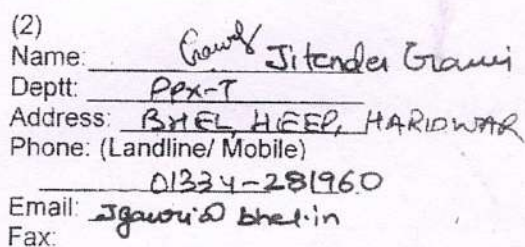 (2)
Name: Jitender Grauri
Deptt: PPX-T
Address: BHEL, HEEP, HARIDWAR
Phone: (Landline/ Mobile)
01334-281960
Email: Jgauri@bhel.in
Fax: